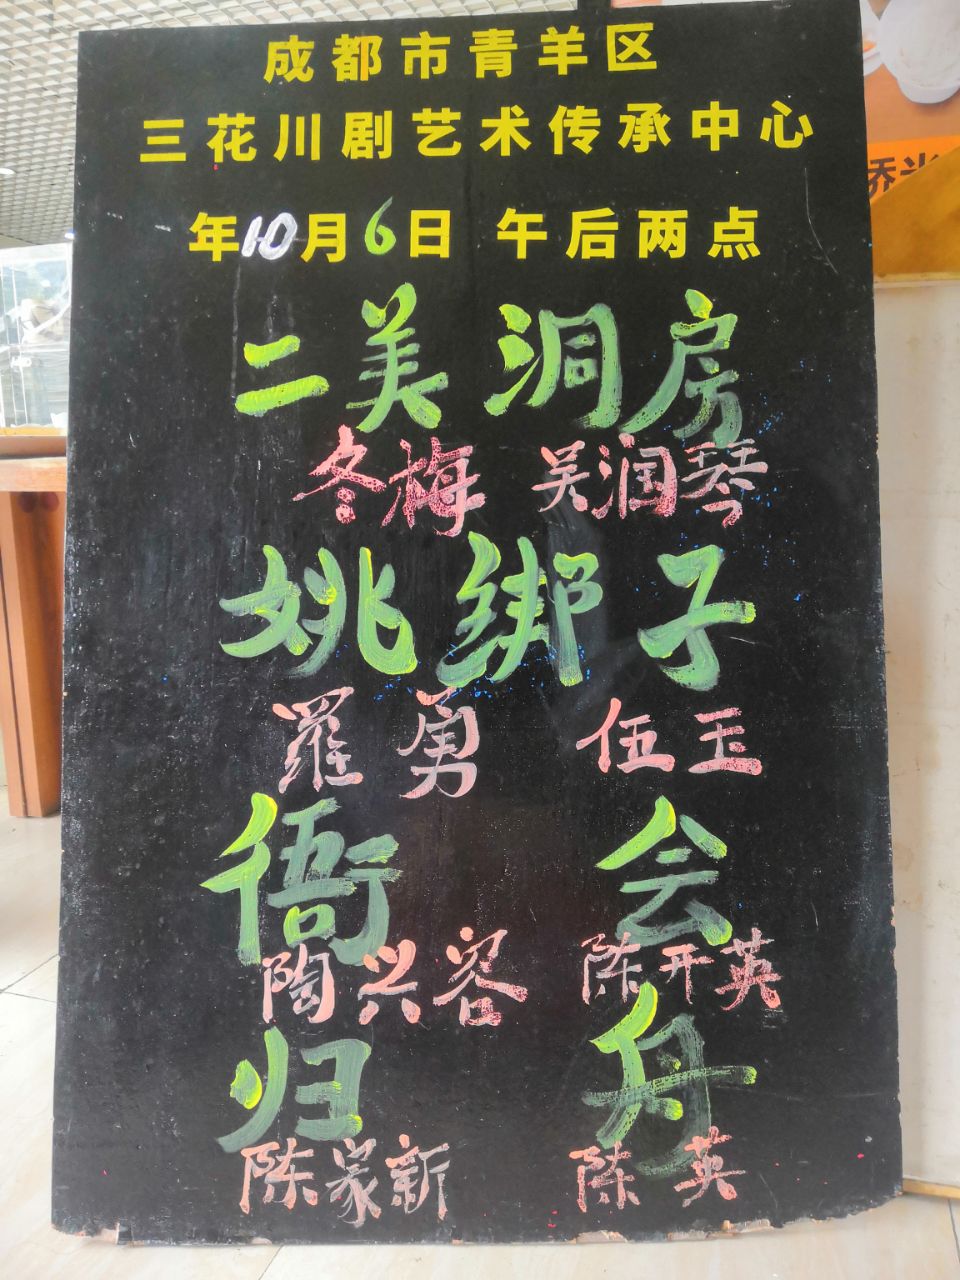 成都市青羊区
三花川剧艺术传承中心
年10月6日 午后两点
二美洞房
冬梅 吴润琴
姚绑子
羅勇 伍玉
衙会
陶兴容 陈开英
归舟
陈家新 陈英
乔米